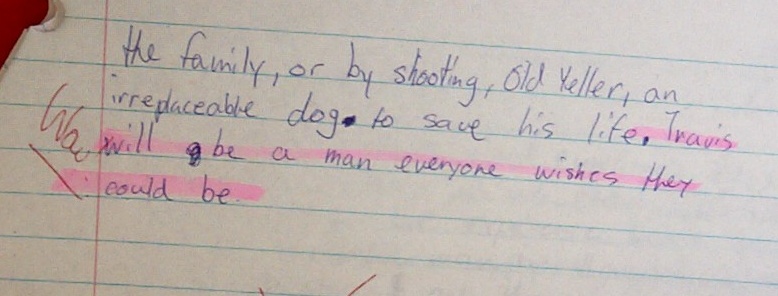 the family, or by shooting, Old Yeller, an
irreplaceable dog to save his life. Travis
will be a man everyone wishes they
could be.